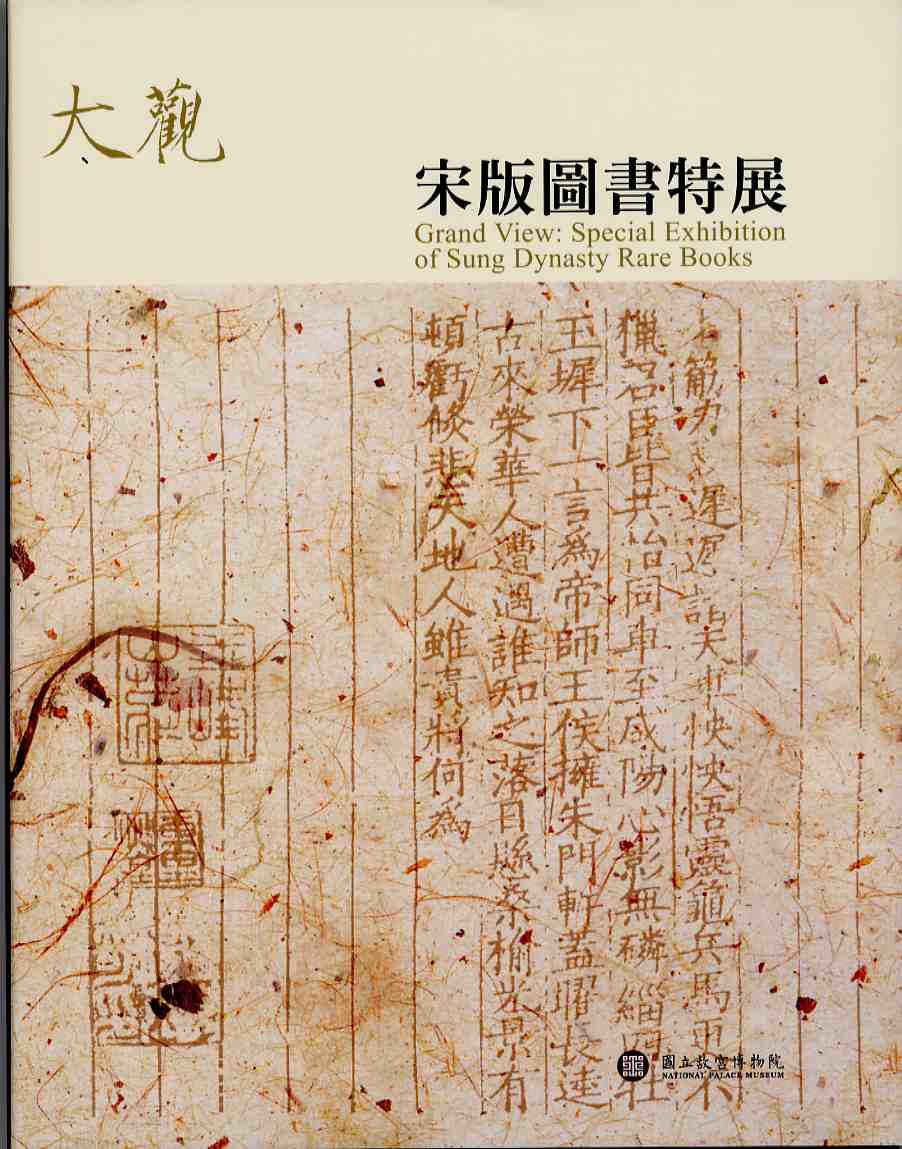 大觀
宋版圖書特展
Grand View: Special Exhibition
of Sung Dynasty Rare Books
筋力 遲迴詣天 怏怏悟靈龜兵馬更不
獵名臣皆共治同車至咸陽心影無磷緇 社
玉墀下一言為帝師王侯擁朱門軒蓋曜長逵
古來榮華人遭遇誰知之落日懸桑榆光景有
頓虧倐悲天地人雖貴將何為
國立故宮博物院
NATIONAL PALACE MUSEUM